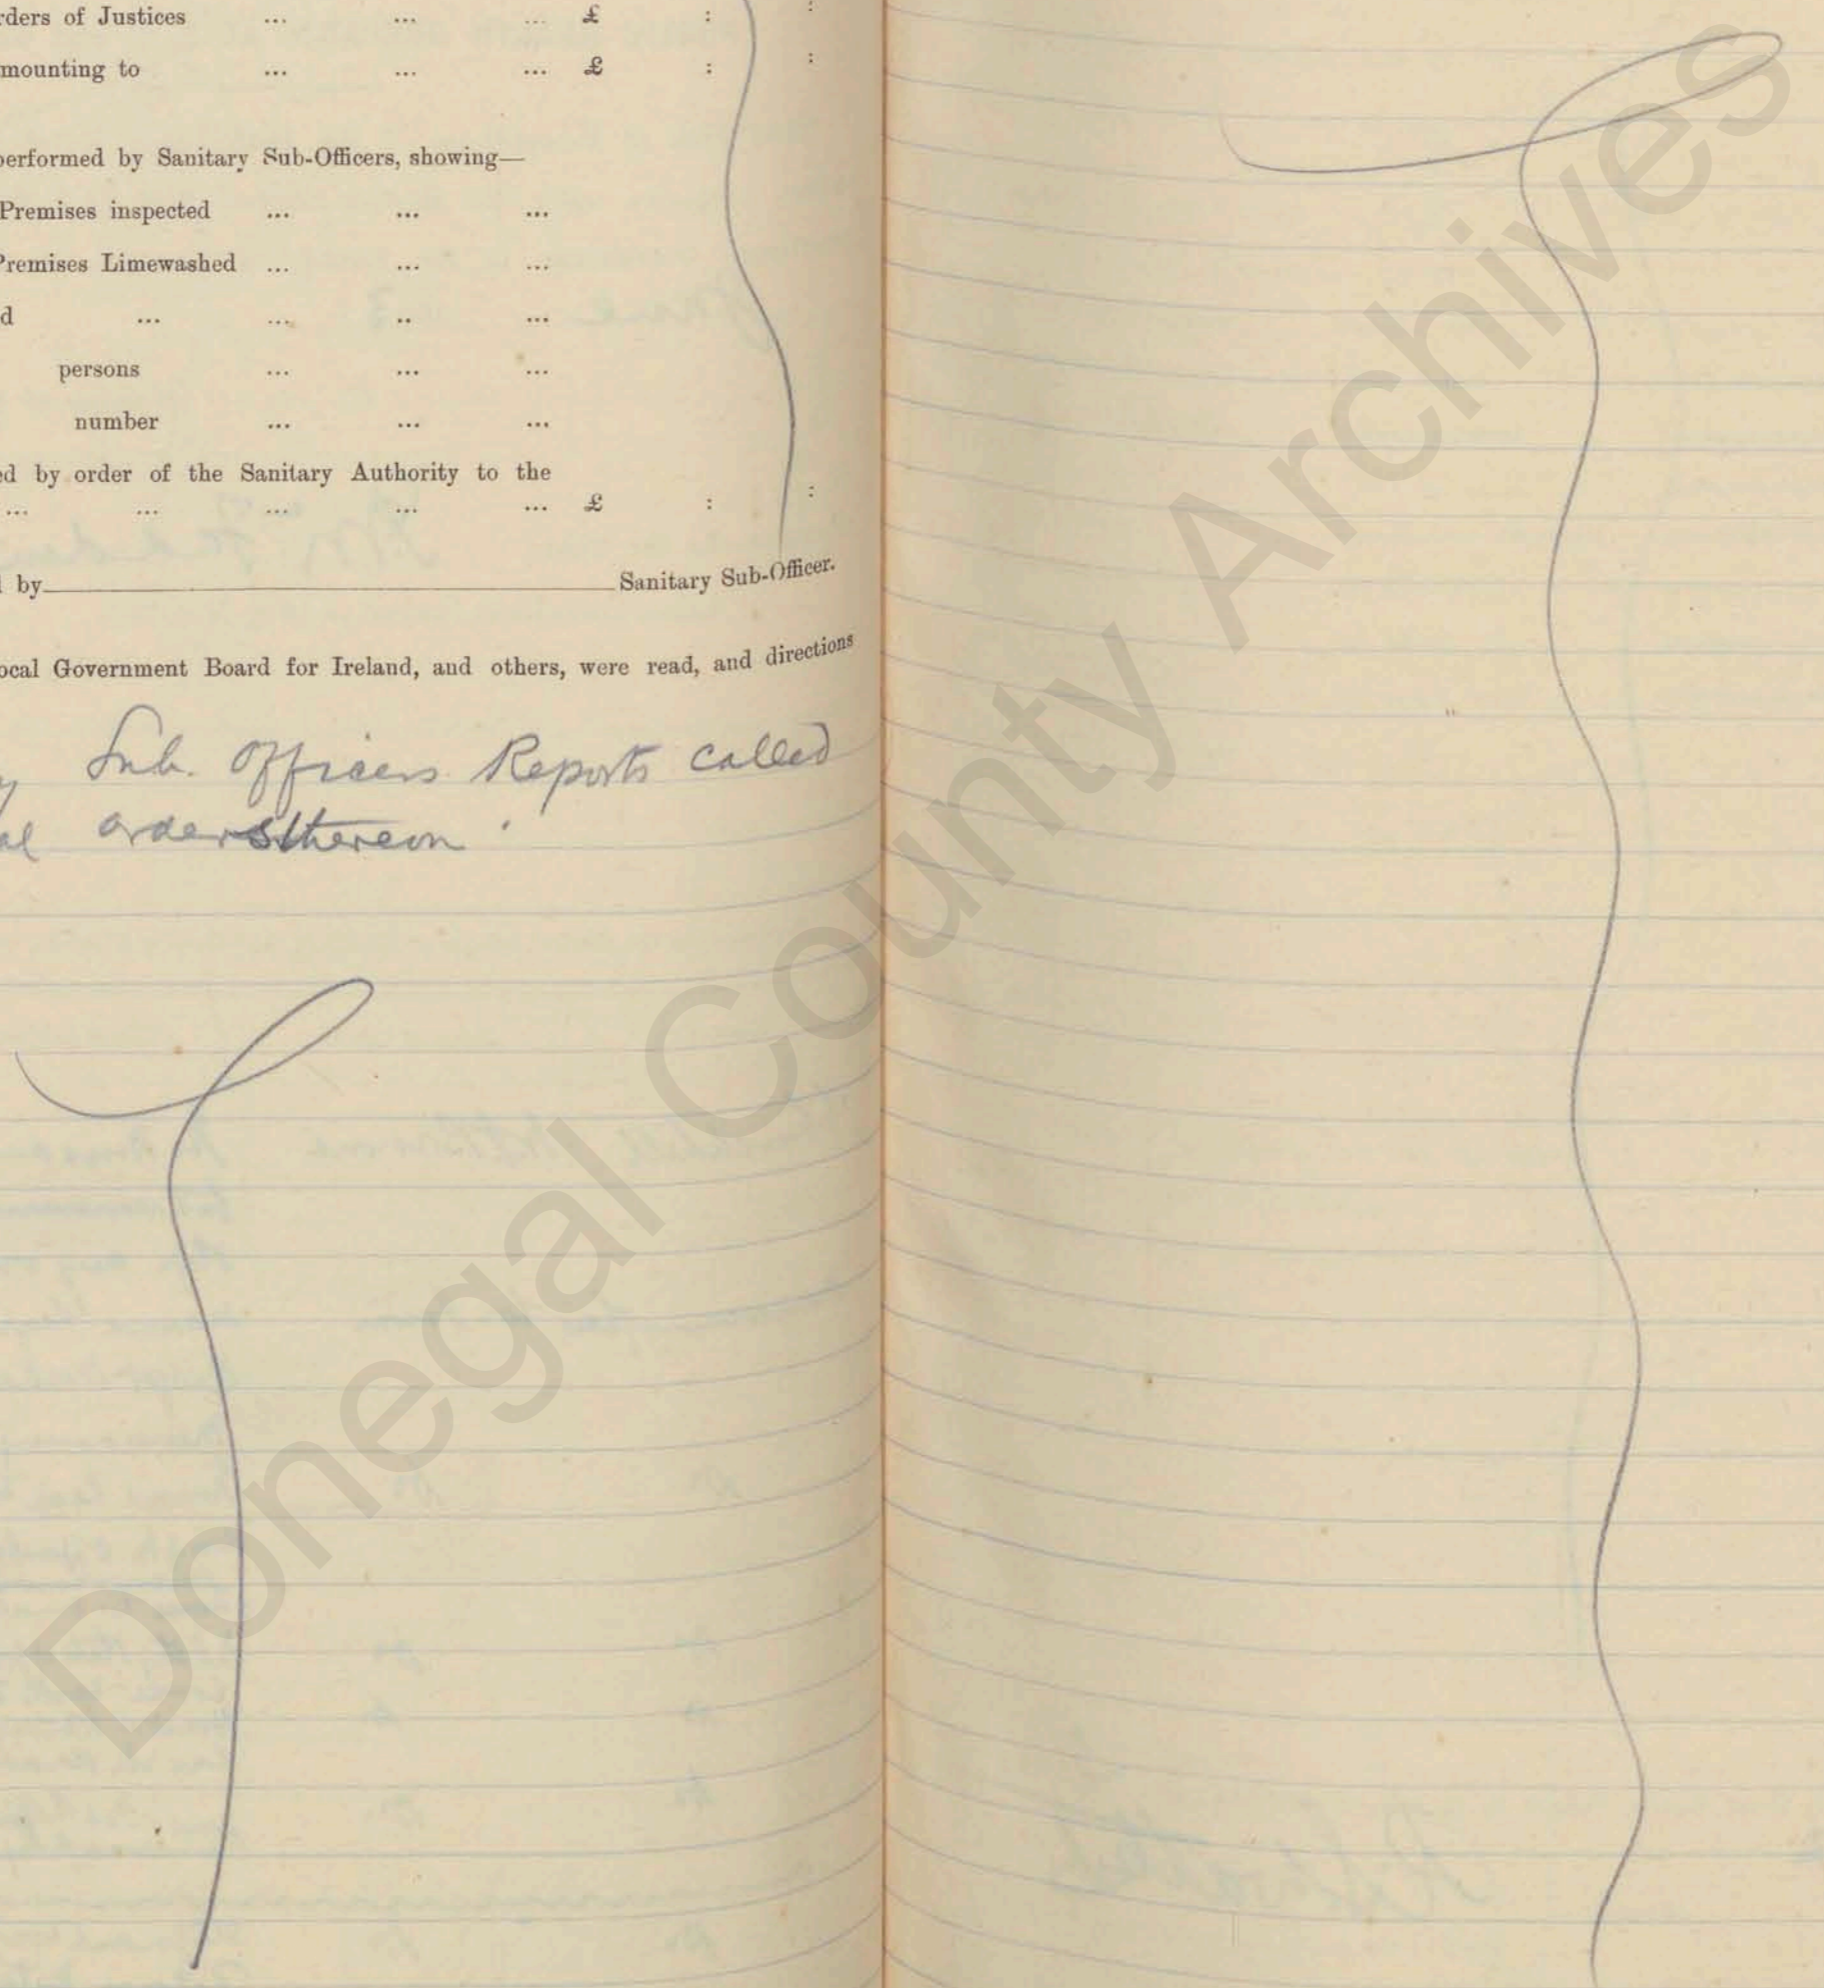 rders of Justices ... ... ... £ : :
mounting to ... ... ... £ : :
performed by Sanitary Sub-Officers, showing—
Premises inspected ... ... ...
Premises Limewashed ... ... ...
d ... ... .. ...
persons ... ... ...
number ... ... ...
ed by order of the Sanitary Authority to the
... ... ... ... ... £ : :
by Sanitary Sub-Officer.
ocal Government Board for Ireland, and others, were read, and directions
y Sub. Officers Reports called
al orders thereon.
Donegal County Archives